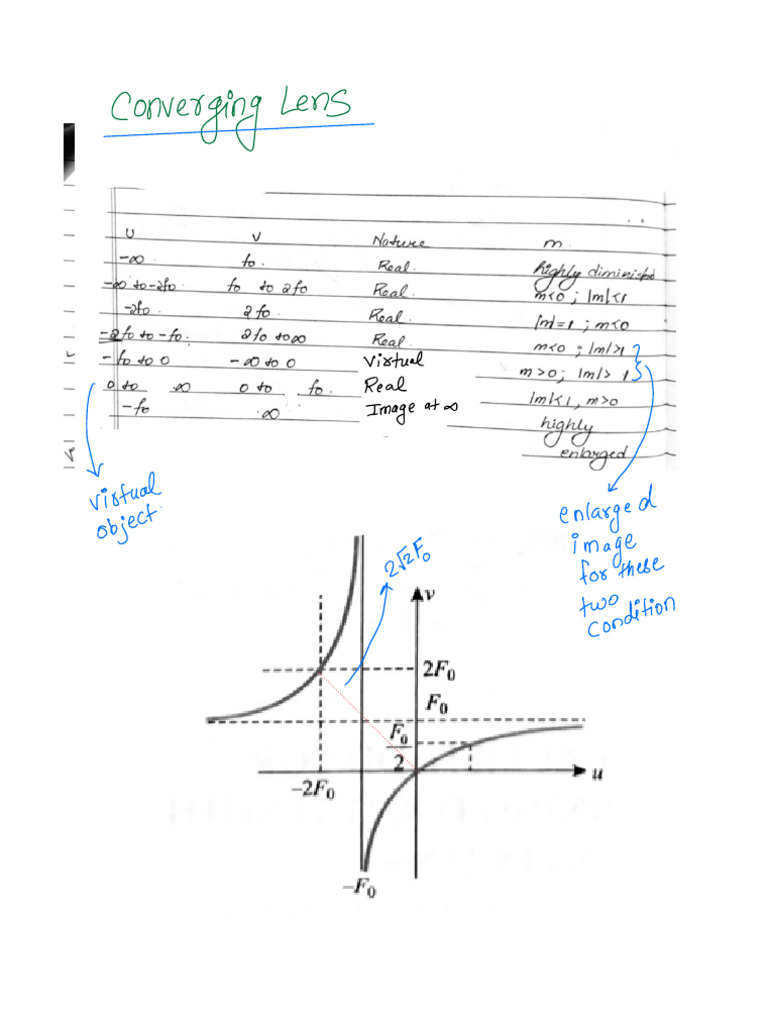 Converging Lens
u v Nature m
-∞ fo. Real. highly diminished
-∞ to -2fo fo to 2fo Real. m<0 ; |m|<1
-2fo 2fo Real. |m|=1 ; m<0
-2fo to -fo. 2fo to ∞ Real. m<0 ; |m|>1
-fo to 0 -∞ to 0 Virtual m>0; |m|>1
0 to ∞ 0 to fo. Real |m|<1, m>0
-fo ∞ Image at ∞ highly
enlarged
virtual
object.
enlarged
image
for these
two
condition
2√2F₀
v
2F₀
F₀
F₀/2
-2F₀
u
-F₀